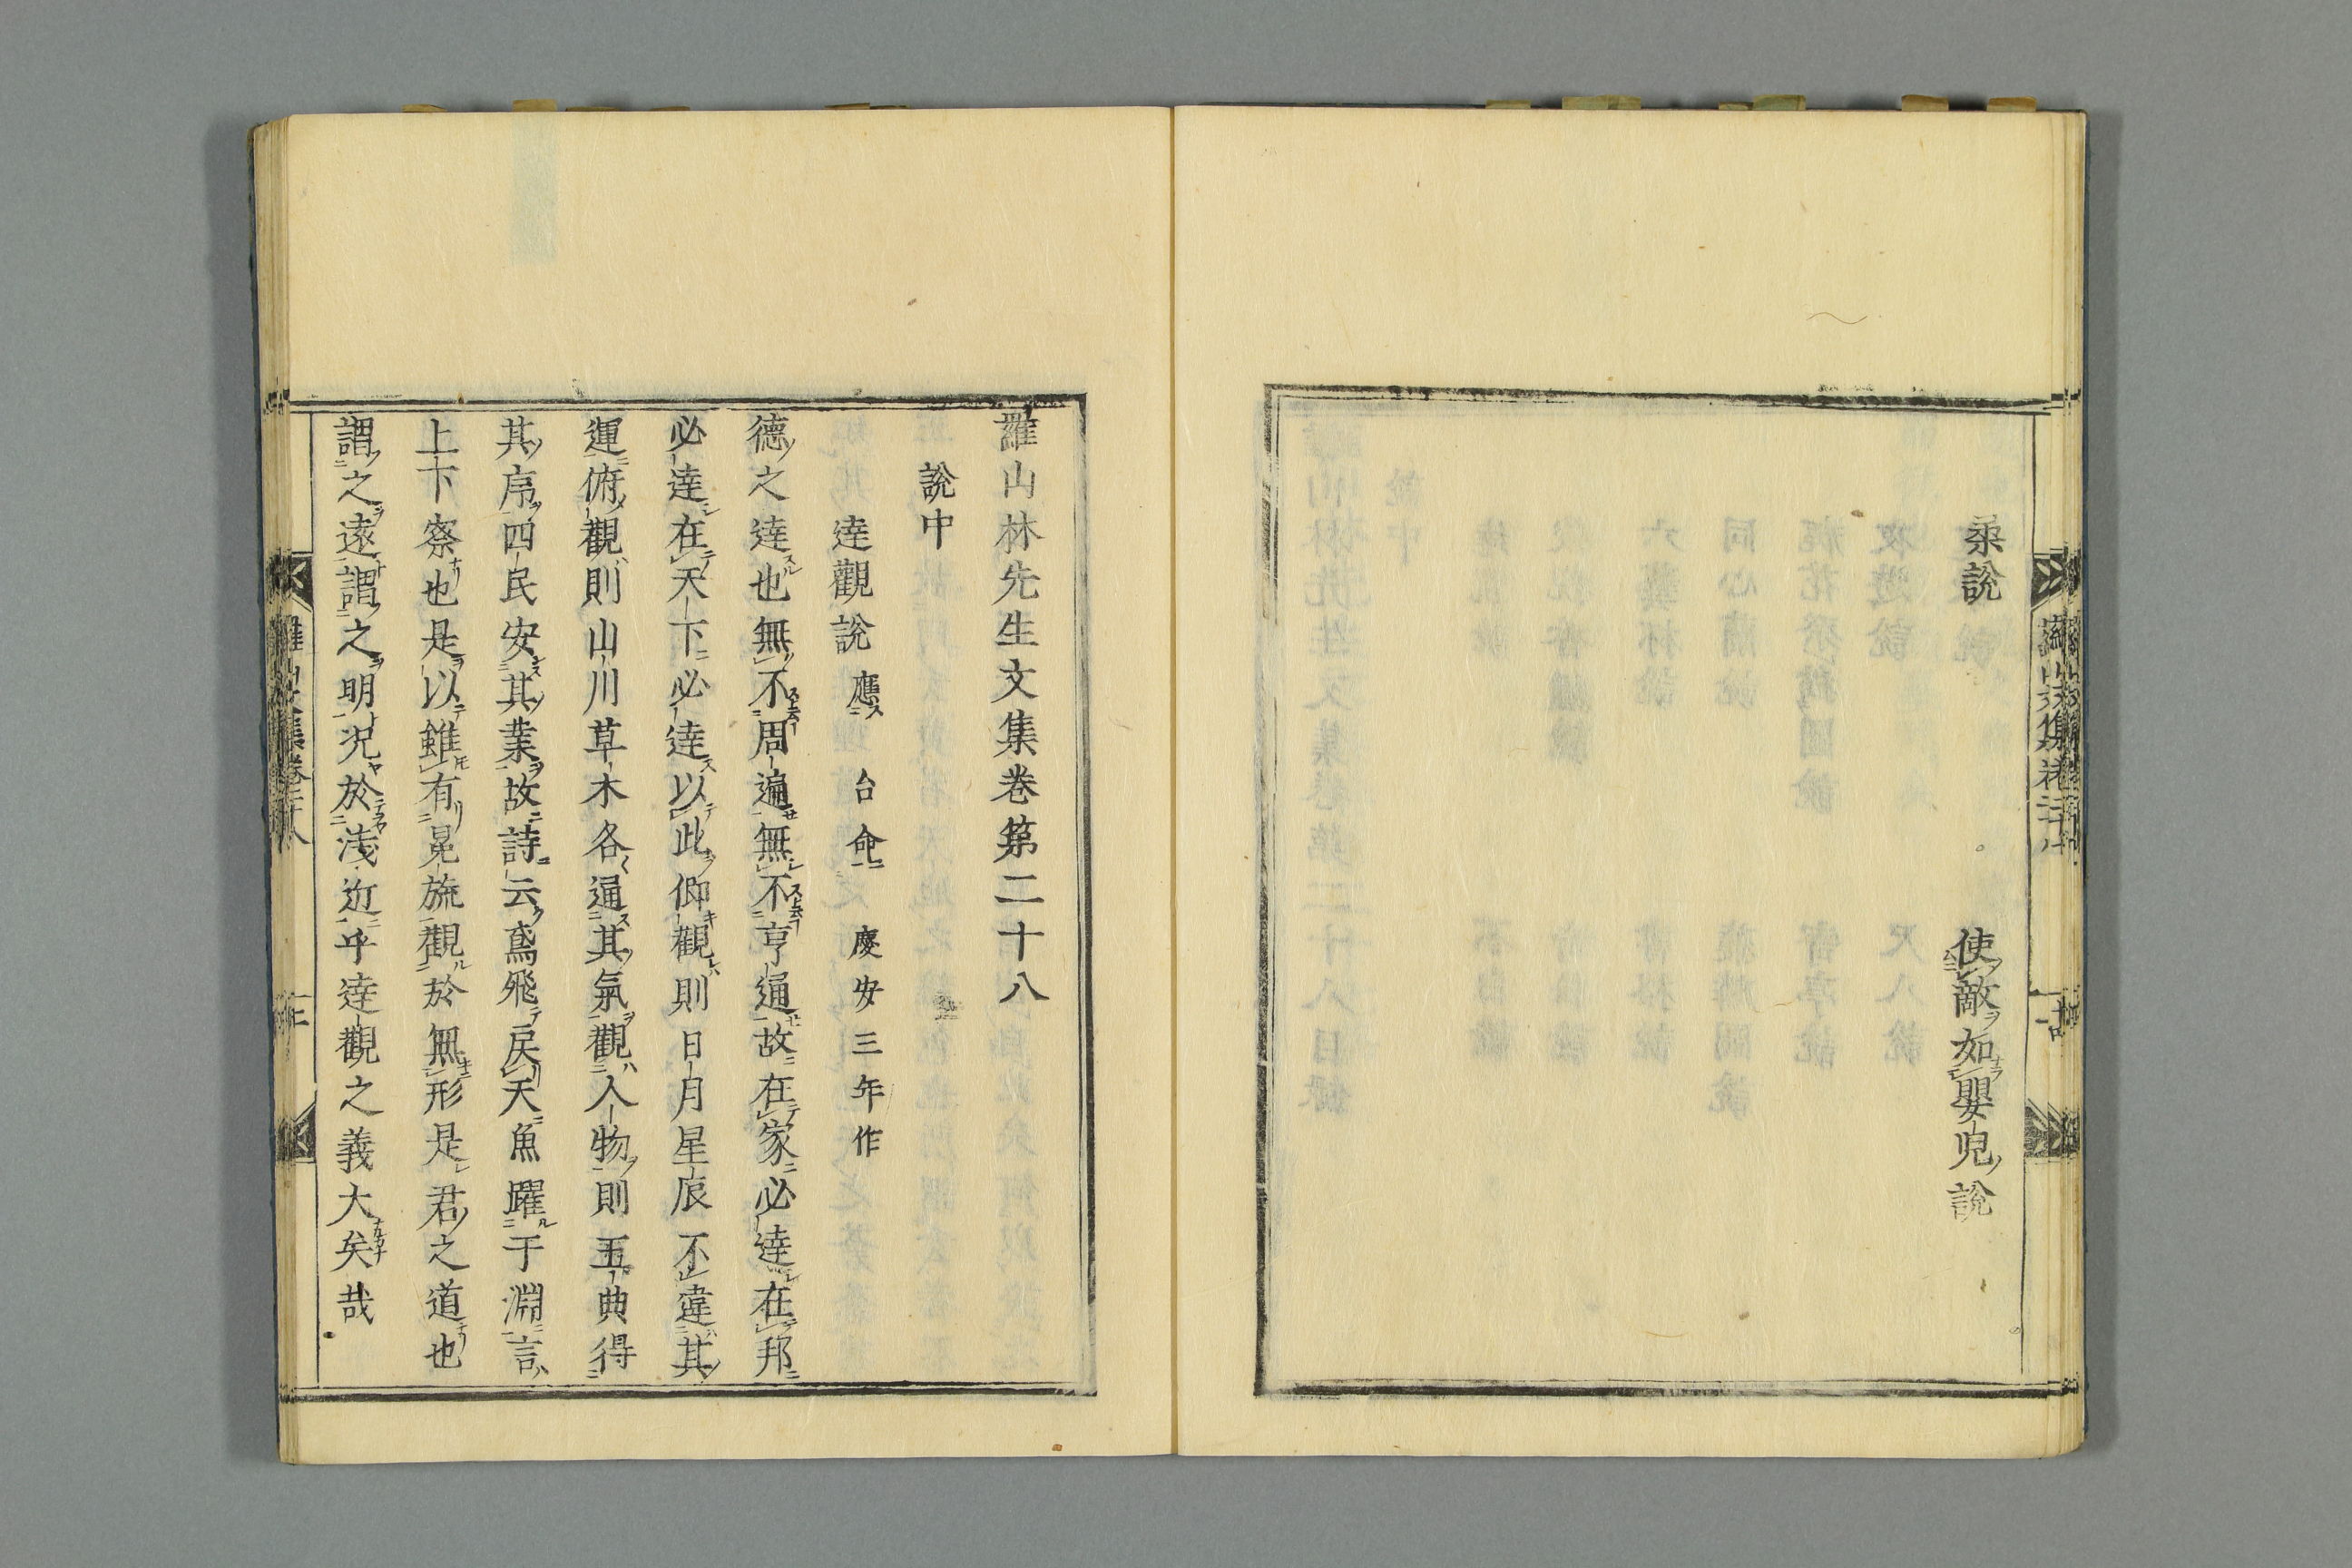 柔說　使敵如嬰兒說
羅山林先生文集卷第二十八
說中
達觀說 應 台命 慶安三年作
德之達也無不周遍無不亨通故在家必達在邦
必達在天下必達以此仰觀則日月星辰不違其
運俯觀則山川草木各通其氣觀人物則五典得
其序四民安其業故詩云鳶飛戾天魚躍于淵言
上下察也是以雖有冕旒觀於無形是君之道也
謂之遠謂之明況於淺近乎達觀之義大矣哉